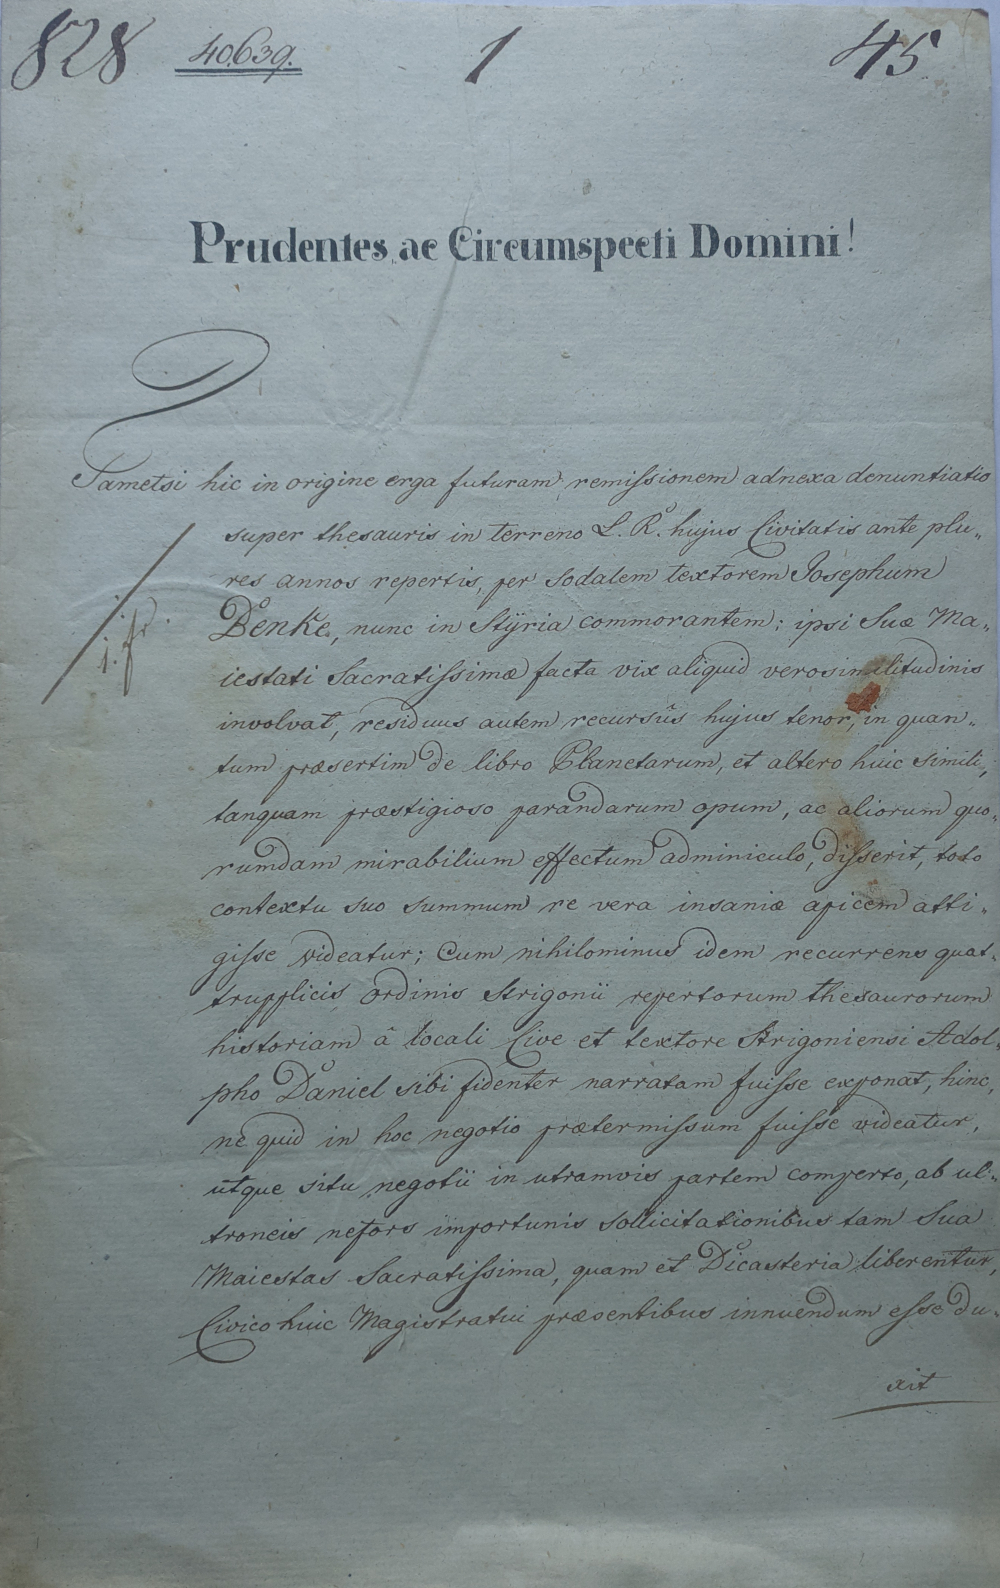 828 40.639. 1 45
Prudentes ac Circumspecti Domini!
Tametsi hic in origine erga futuram remissionem adnexa denuntiatio
super thesauris in terreno L. R. hujus Civitatis ante plu„
res annos repertis, per Sodalem textorem Josephum
Denke, nunc in Stÿria commorantem; ipsi Suæ Ma„
iestati Sacratissimæ facta vix aliquid verosimilitudinis
involvat, residuus autem recursûs hujus tenor, in quan„
tum præsertim de libro Planetarum, et altero huic simili,
tanquam præstigioso parandarum opum, ac aliorum quo„
rumdam mirabilium effectum adminiculo, disserit, toto
contextu suo summum re vera insaniæ apicem atti„
gisse videatur; Cum nihilominus idem recurrens quat„
trupplicis ordinis Strigonii repertorum thesaurorum
historiam â locali Cive et textore Strigoniensi Adol„
pho Daniel sibi fidenter narratam fuisse exponat, hinc,
ne quid in hoc negotio prætermissum fuisse videatur,
utque situ negotii in utramvis partem comperto, ab ul„
troneis nefors importunis sollicitationibus tam Sua
Maiestas Sacratissima, quam et Dicasteria liberentur,
Civico huic Magistratui præsentibus innuendum esse du„
xit